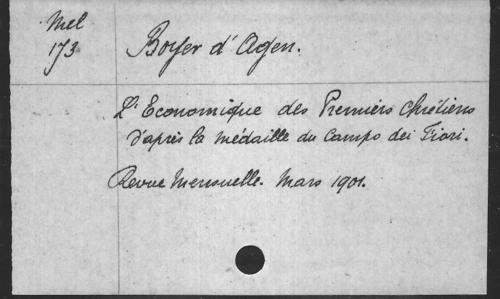 Mel
173
Boyer d'Agen.
L'Economique des Premiers Chrétiens
d'après la médaille du Campo dei Fiori.
Revue Mensuelle. Mars 1901.